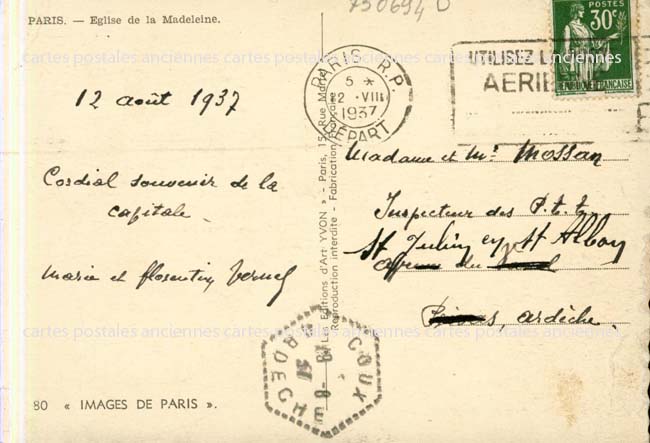 750694 D
PARIS. — Eglise de la Madeleine.
POSTES
30c
REPUBLIQUE FRANÇAISE
UTILISEZ L
AERIE
PARIS R.P.
5 *
12 · VIII
1937
DEPART
12 août 1937
Cordial souvenir de la
capitale.
Marie et florentin
Les Editions d'Art "YVON" - Paris, 15, Rue Martel
Reproduction interdite - Fabrication Française
Madame et Mr Mossan
Inspecteur des P.t.t
St Julien St Alban
du
Privas, ardèche.
COUX
ARDECHE
13 -8
37
80 « IMAGES DE PARIS ».
cartes postales anciennes cartes postales anciennes cartes postales anciennes cartes postales anciennes